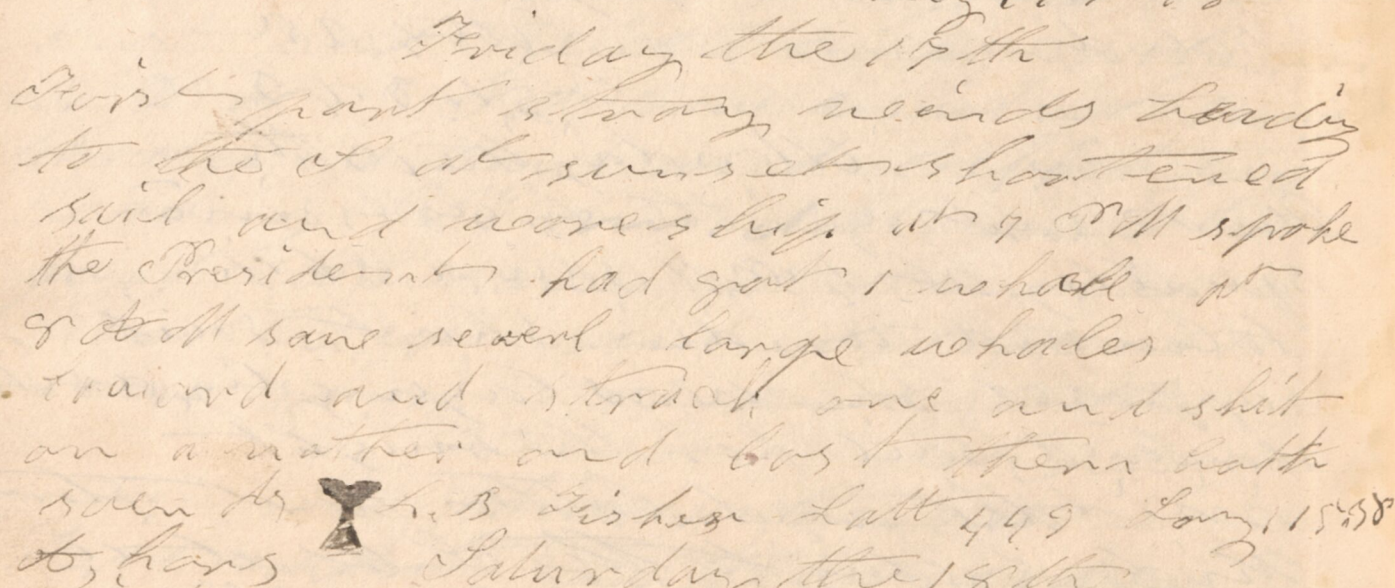 Friday the 17th
First part strong winds heading
to the S at sunset shortened
sail and wore ship at 7 PM spoke
the President had got 1 whale at
8 AM saw severl large whales
loward and struck one and shit
on a nother and lost them both
L. B. Fisher Latt 4,49 Long 115,58
Saturday the 18th